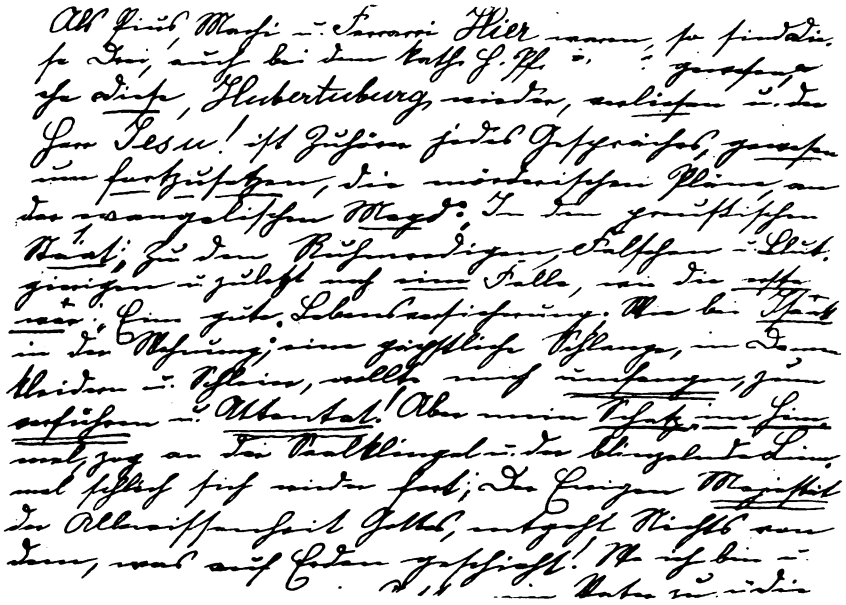 Als Pius, Machi u. Ferrari Hier waren, so sind die-
se Drei, auch bei dem kath. H. Pf. gewesen,
che diese, Hubertuburg, wieder, verliesen u. der
Herr Jesu! ist Zuhörer jedes Gespräches, gewesen
um fortzusetzen, die mörderischen Pläne, an
der evangelischen Magd. In dem preußischen
Staat; zu dem Ruhmredigen, Falschen u. Blut-
gierigen u. zuletzt noch eine Falle, wie die erste
war: Eine gute Lebensversicherung. Wie bei
in der Wohnung; eine päpstliche Schlange, in Damen
kleidern u. Schleier, wollte mich umfangen, zum
verführen u. Attentat! Aber mein Schatz im Him-
mel, zog an der Saalklingel u. der blinzelnde Lüm-
mel schlich sich wieder fort; Der Ewigen Majestät
der Allwissenheit Gottes, entgeht Nichts von
dem, was auf Erden geschieht! Wo ich bin u.
Vater zu u. die